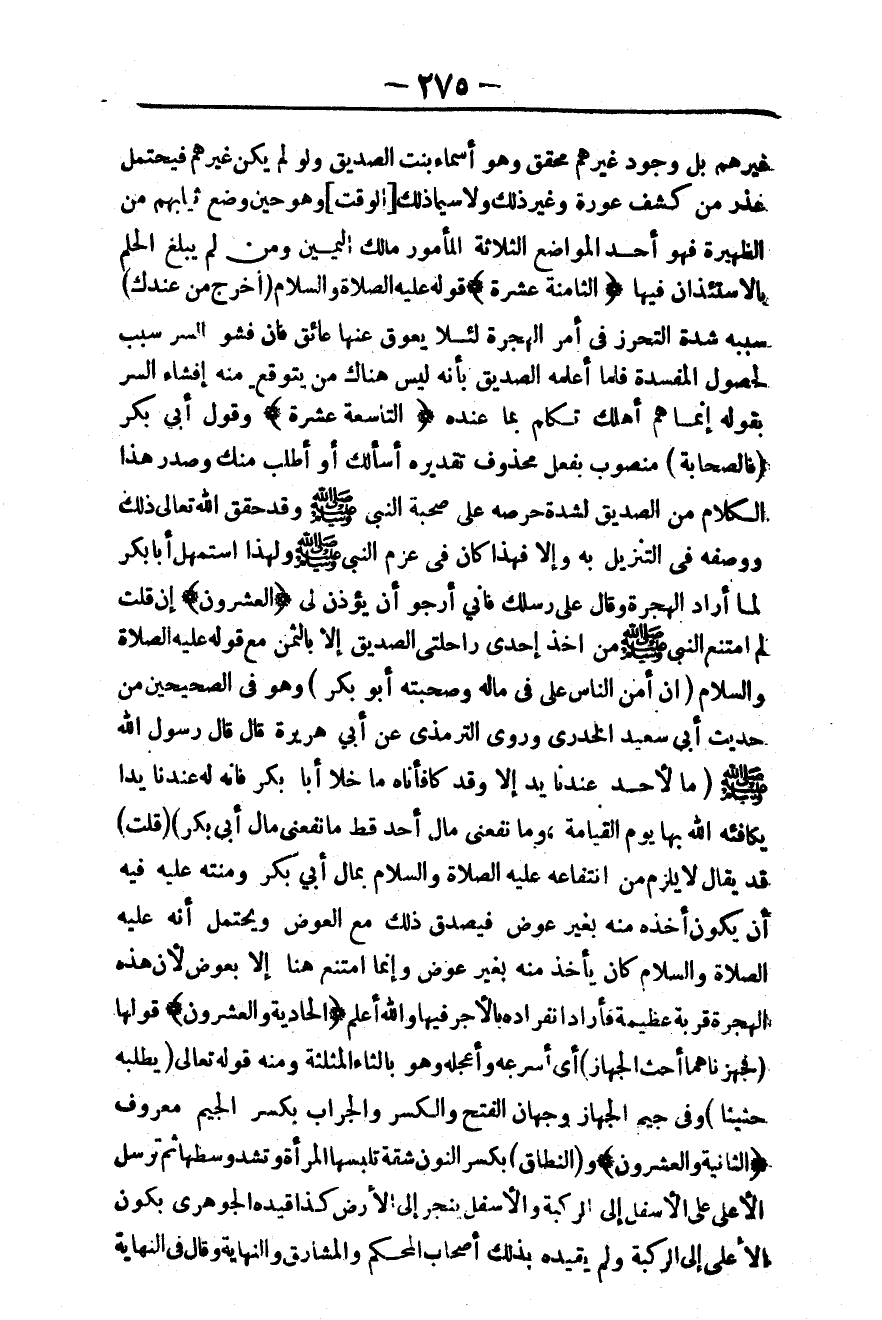 — ٢٧٥ —
غيرهم بل وجود غيرهم محقق وهو أسماء بنت الصديق ولو لم يكن غيرهم فيحتمل
عذر من كشف عورة وغير ذلك ولاسيما ذلك [الوقت] وهو حين وضع ثيابهم من
الظهيرة فهو أحد المواضع الثلاثة المأمور مالك اليمين ومن لم يبلغ الحلم
بالاستئذان فيها ﴿ الثامنة عشرة ﴾ قوله عليه الصلاة والسلام (أخرج من عندك)
سببه شدة التحرز فى أمر الهجرة لئلا يعوق عنها عائق فان فشو السر سبب
لحصول المفسدة فلما أعلمه الصديق بأنه ليس هناك من يتوقع منه إفشاء السر
بقوله إنما هم أهلك تكلم بما عنده ﴿ التاسعة عشرة ﴾ وقول أبي بكر
(فالصحابة) منصوب بفعل محذوف تقديره أسألك أو أطلب منك وصدر هذا
الكلام من الصديق لشدة حرصه على صحبة النبي ﷺ وقد حقق الله تعالى ذلك
ووصفه فى التنزيل به وإلا فهذا كان فى عزم النبي ﷺ ولهذا استمهل أبا بكر
لما أراد الهجرة وقال على رسلك فاني أرجو أن يؤذن لى ﴿ العشرون ﴾ إن قلت
لم امتنع النبي ﷺ من اخذ إحدى راحلتى الصديق إلا بالثمن مع قوله عليه الصلاة
والسلام (ان أمن الناس على فى ماله وصحبته أبو بكر) وهو فى الصحيحين من
حديث أبي سعيد الخدرى وروى الترمذى عن أبي هريرة قال قال رسول الله
ﷺ (ما لأحد عندنا يد إلا وقد كافأناه ما خلا أبا بكر فانه له عندنا يدا
يكافئه الله بها يوم القيامة ، وما نفعنى مال أحد قط ما نفعنى مال أبي بكر) (قلت)
قد يقال لا يلزم من انتفاعه عليه الصلاة والسلام بمال أبي بكر ومنته عليه فيه
أن يكون أخذه منه بغير عوض فيصدق ذلك مع العوض ويحتمل أنه عليه
الصلاة والسلام كان يأخذ منه بغير عوض وإنما امتنع هنا إلا بعوض لأن هذه
الهجرة قربة عظيمة فأراد انفراده بالأجر فيها والله أعلم ﴿ الحادية والعشرون ﴾ قولها
(فجهزناهما أحث الجهاز) أى أسرعه وأعجله وهو بالثاء المثلثة ومنه قوله تعالى (يطلبه
حثيثا) وفى جيم الجهاز وجهان الفتح والكسر والجراب بكسر الجيم معروف
﴿ الثانية والعشرون ﴾ و (النطاق) بكسر النون شقة تلبسها المرأة وتشد وسطها ثم ترسل
الأعلى على الأسفل إلى الركبة والأسفل ينجر إلى الأرض كذا قيده الجوهرى بكون
الأعلى إلى الركبة ولم يقيده بذلك أصحاب المحكم والمشارق والنهاية وقال فى النهاية